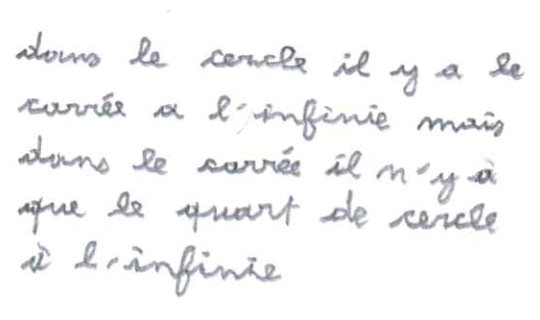 dans le cercle il y a le
carrée a l'infinie mais
dans le carrée il n'y à
que le quart de cercle
à l'infinie